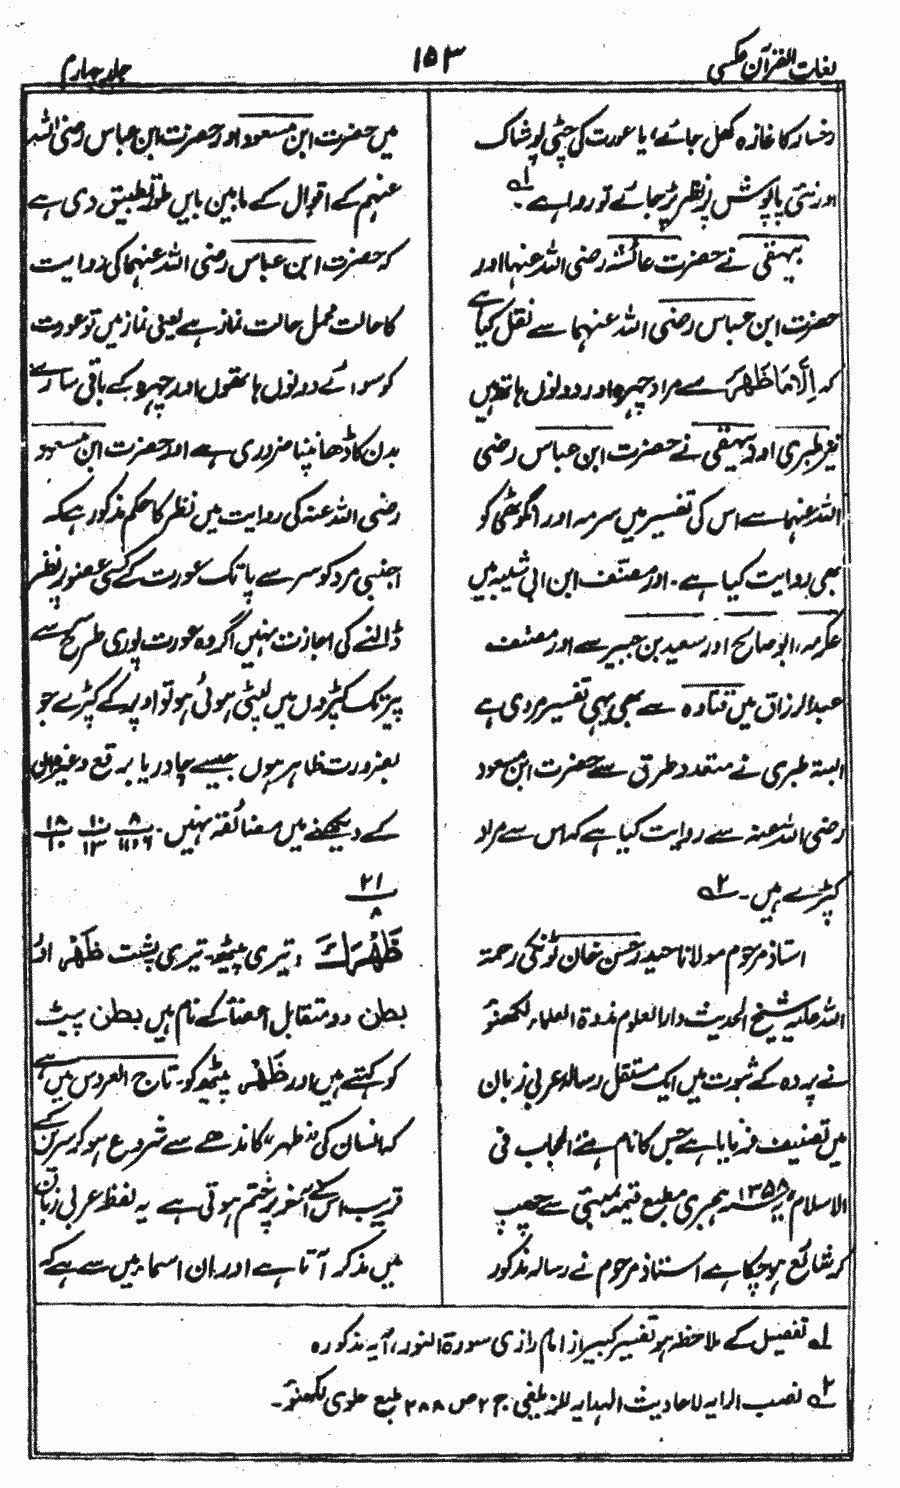 لغات القرآن عکسی
۱۵۳
جلد چہارم
رخسار کا غازہ کھل جائے، یا عورت کی چٹی پوشاک
اور نئی پاپوش پر نظر پڑ جائے تو روا ہے۔ لہ
بیہقی نے حضرت عائشہ رضی اللہ عنہا اور
حضرت ابن عباس رضی اللہ عنہما سے نقل کیا ہے
کہ اِلَّا مَا ظَهَرَ سے مراد چہرہ اور دونوں ہاتھ ہیں
نیز طبری اور بیہقی نے حضرت ابن عباس رضی
اللہ عنہما سے اس کی تفسیر میں سرمہ اور انگوٹھی کو
بھی روایت کیا ہے۔ اور مصنف ابن ابی شیبہ میں
عکرمہ، ابو صالح اور سعید بن جبیر سے اور مصنف
عبدالرزاق میں قتادہ سے بھی یہی تفسیر مروی ہے
البتہ طبری نے متعدد طرق سے حضرت ابن مسعود
رضی اللہ عنہ سے روایت کیا ہے کہ اس سے مراد
کپڑے ہیں۔ ۲ہ
استاذ مرحوم مولانا حیدر حسن خان ٹونکی رحمۃ
اللہ علیہ شیخ الحدیث دارالعلوم ندوۃ العلماء لکھنؤ
نے پردہ کے ثبوت میں ایک مستقل رسالہ عربی زبان
میں تصنیف فرمایا ہے جس کا نام ہے الحجاب فی
الاسلام یہ ۱۳۵۸ ہجری مطبع قیمہ بمبئی سے چھپ
کر شائع ہو چکا ہے استاذ مرحوم نے رسالہ مذکور
میں حضرت ابن مسعود اور حضرت ابن عباس رضی اللہ
عنہم کے اقوال کے مابین بایں طور تطبیق دی ہے
کہ حضرت ابن عباس رضی اللہ عنہما کی روایت
کا حالت محمل حالت نماز ہے یعنی نماز میں تو عورت
کو سوائے دونوں ہاتھوں اور چہرہ کے باقی سارے
بدن کا ڈھانپنا ضروری ہے اور حضرت ابن مسعود
رضی اللہ عنہ کی روایت میں نظر کا حکم مذکور ہے کہ
اجنبی مرد کو سر سے پا تک عورت کے کسی عضو پر نظر
ڈالنے کی اجازت نہیں اگر وہ عورت پوری طرح سر سے
پیر تک کپڑوں میں لپٹی ہوئی ہو تو اوپر کے کپڑے جو
بضرورت ظاہر ہوں جیسے چادر یا برقع وغیرہ ان
کے دیکھنے میں مضائقہ نہیں۔ ۸/۱۱،۱۶ ۱۰/۱۳ ۱۸/۱۰
۲۱/۸
ظَهْرَكَ، تیری پیٹھ۔ تیری پشت ظَهْر اور
بطن دو متقابل اعضاء کے نام ہیں بطن پیٹ
کو کہتے ہیں اور ظَهْر پیٹھ کو۔ تاج العروس میں ہے
کہ انسان کی "ظہر" کاندھے سے شروع ہو کر سرین کے
قریب اس کے آخر پر ختم ہوتی ہے یہ لفظ عربی زبان
میں مذکر آتا ہے اور ان اسماء میں سے ہے کہ
لہ تفصیل کے ملاحظہ ہو تفسیر کبیر از امام رازی سورۃ النور، آیہ مذکورہ
۲ہ نصب الرایہ لاحادیث الہدایہ للزیلعی ج ۲ ص ۲۸۸ طبع علوی لکھنؤ۔